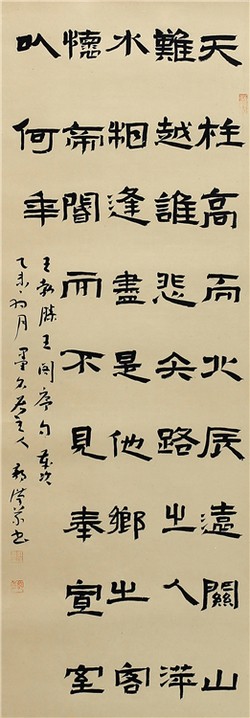 天柱高而北辰遠關山
難越誰悲失路之人萍
水相逢盡是他鄉之客
懷帝閽而不見奉宣室
以何年
王勃滕王閣序句
乙未 月 主人 書